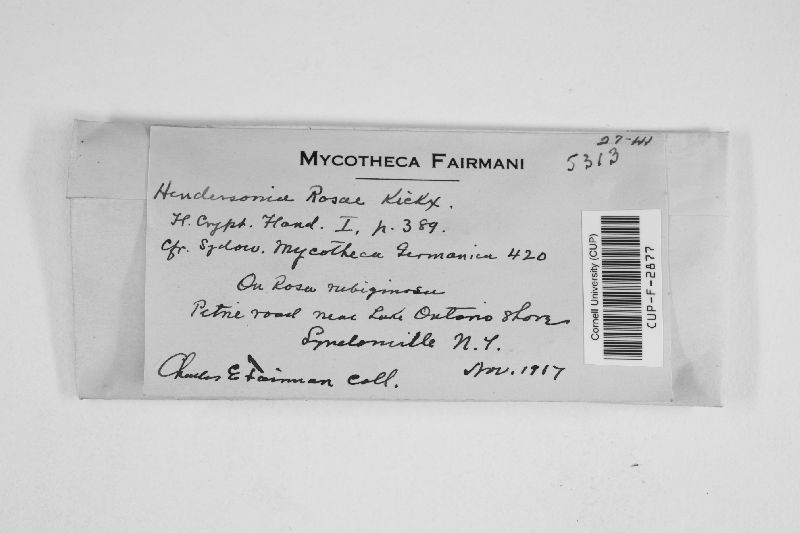 27-44
5313
MYCOTHECA FAIRMANI
Hendersonia Rosae Kickx.
Fl. Crypt. Fland. I, p. 389.
Cfr. Sydow. Mycotheca Germanica 420
On Rosa rubiginosa
Petrie road near Lake Ontario shore
Lyndonville N.Y.
Charles E Fairman Coll. Nov. 1917
Cornell University (CUP)
CUP-F-2877